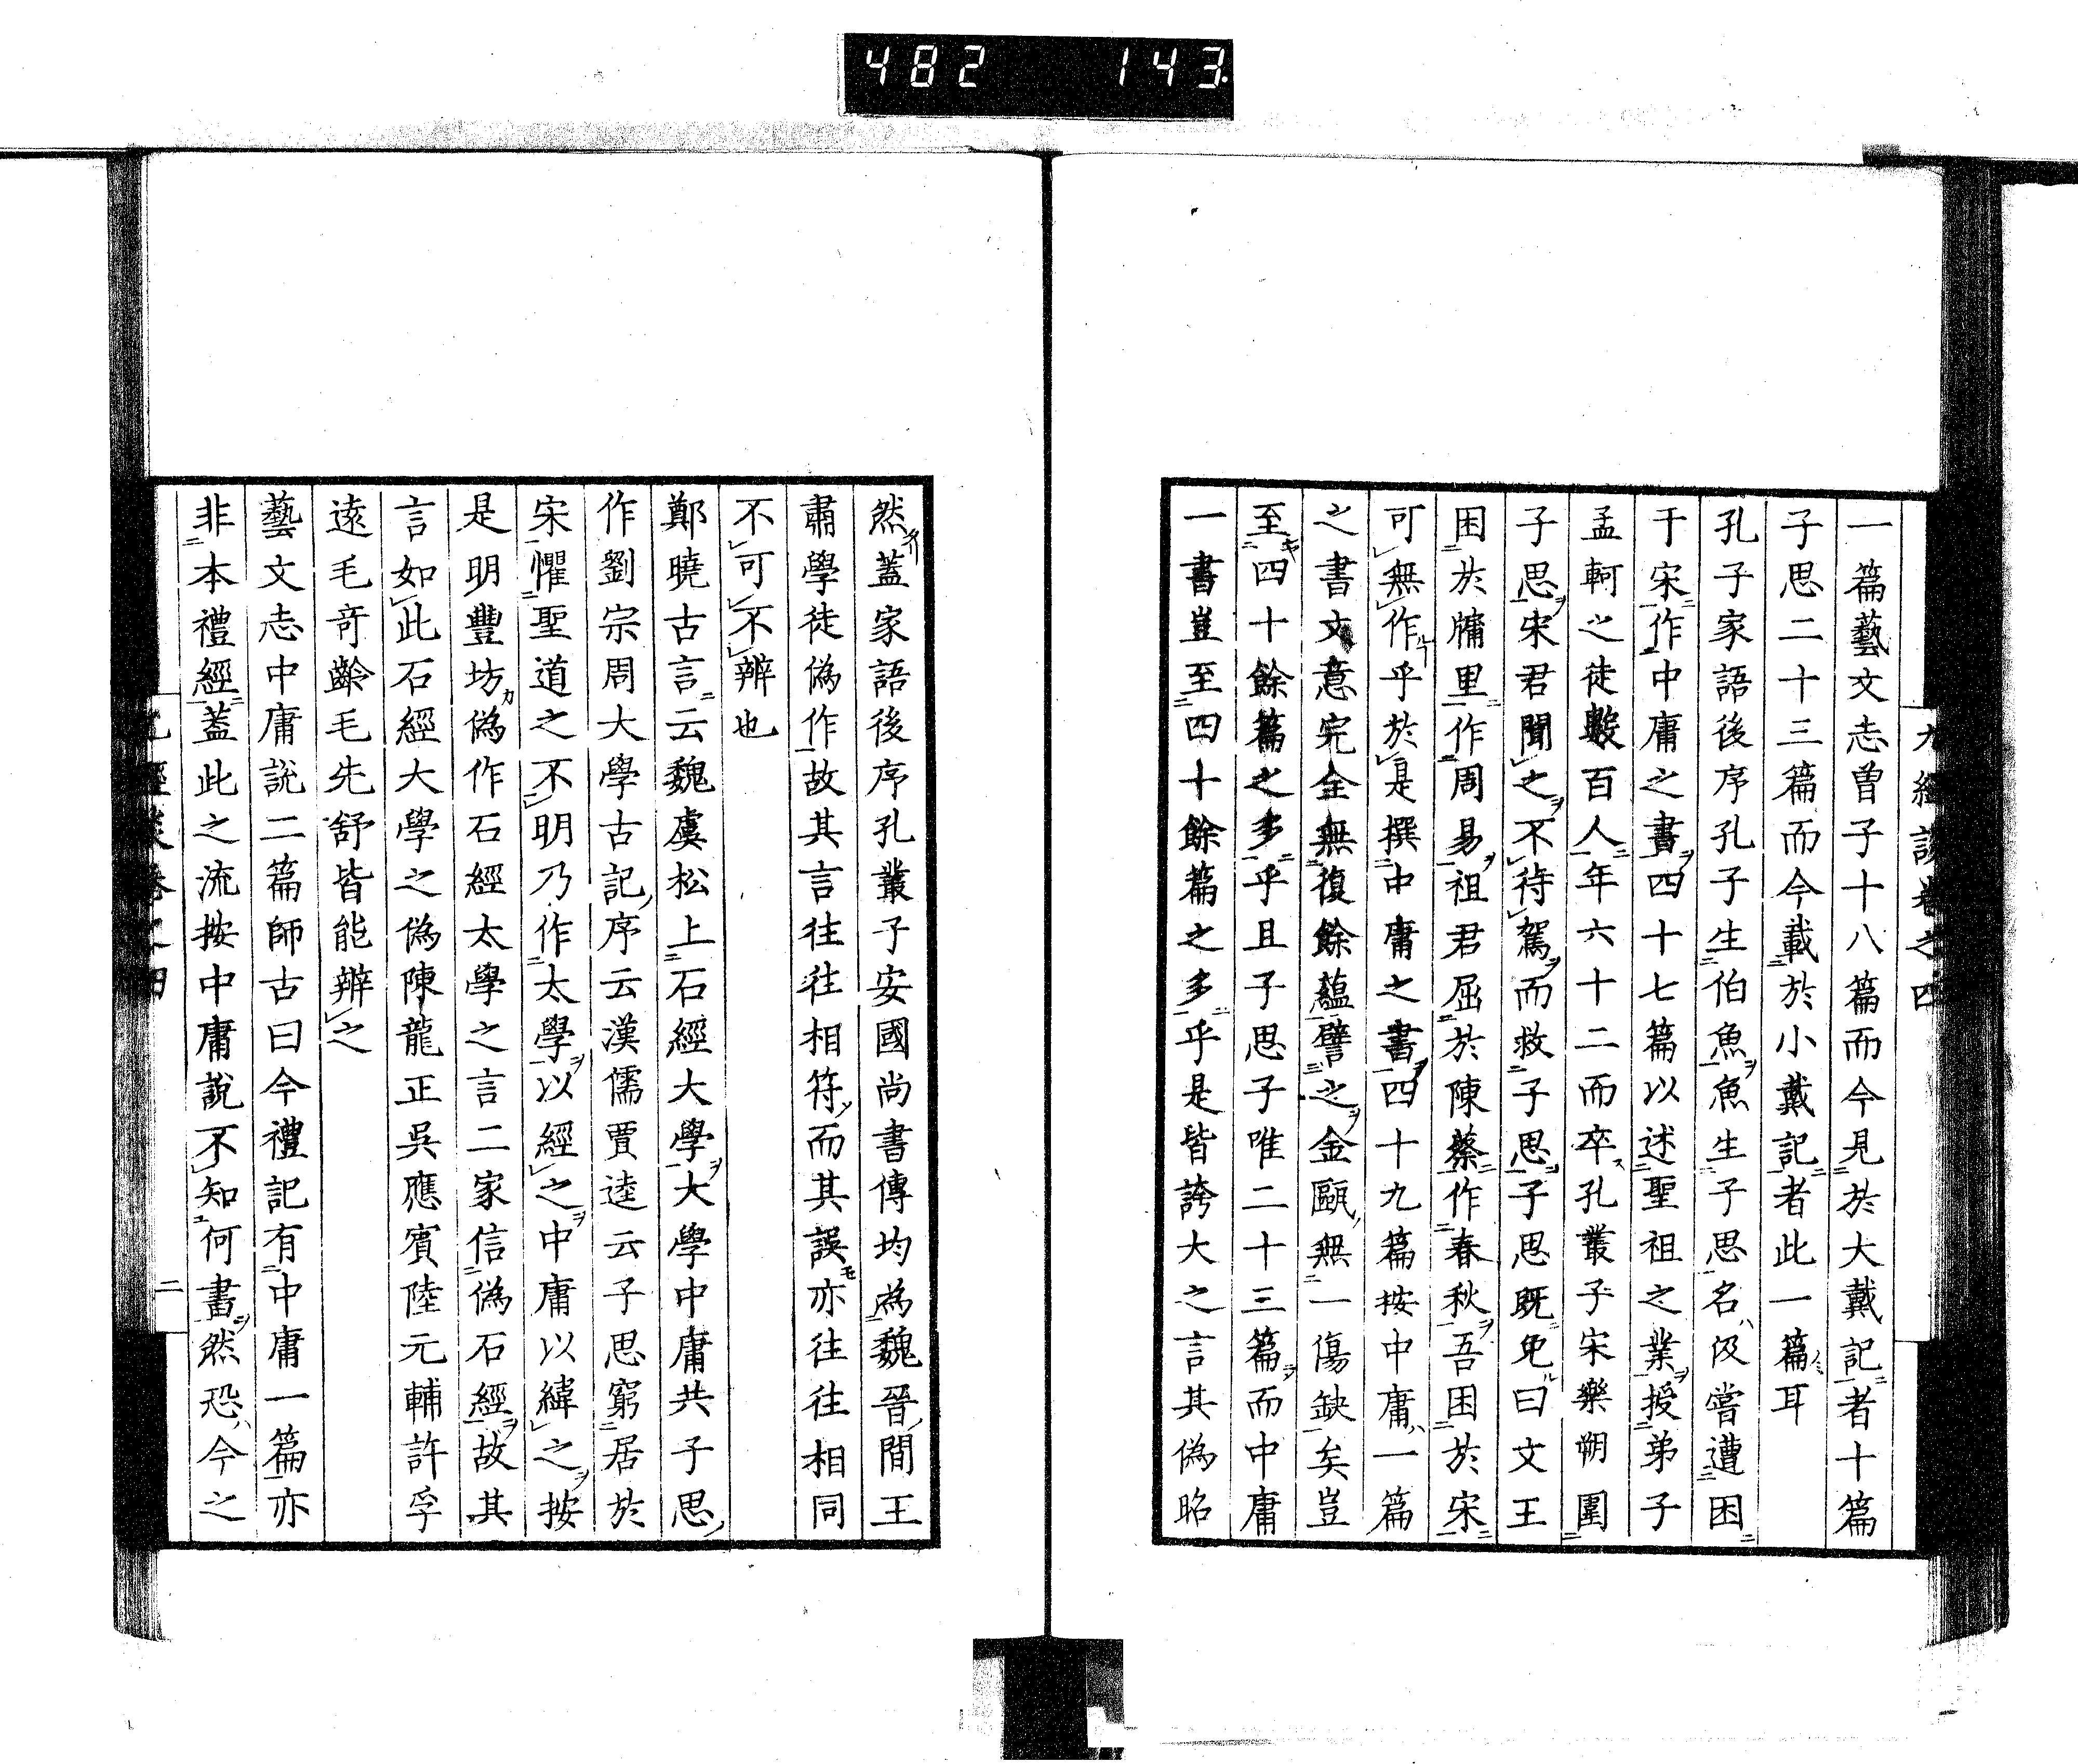 482 143
一篇藝文志曽子十八篇而今見於大戴記者十篇
子思二十三篇而今載於小戴記者此一篇耳
孔子家語後序孔子生伯魚魚生子思名伋嘗遭困
于宋作中庸之書四十七篇以述聖祖之業授弟子
孟軻之徒數百人年六十二而卒孔叢子宋樂朔圍
子思宋君聞之不待駕而救子思子思既免曰文王
困於牖里作周易祖君屈於陳蔡作春秋吾困於宋
可無作乎於是撰中庸之書四十九篇按中庸一篇
之書文意完全無復餘蘊譬之金甌無一傷缺矣豈
至四十餘篇之多乎且子思子唯二十三篇而中庸
一書豈至四十餘篇之多乎是皆誇大之言其偽昭
然蓋家語後序孔叢子安國尚書傳均為魏晉間王
肅學徒偽作故其言往往相符而其誤亦往往相同
不可不辨也
鄭曉古言云魏虞松上石經大學大學中庸共子思
作劉宗周大學古記序云漢儒賈逵云子思窮居於
宋懼聖道之不明乃作大學以經之中庸以緯之按
是明豐坊偽作石經太學之言二家信偽石經故其
言如此石經大學之偽陳龍正吳應賓陸元輔許孚
遠毛奇齡毛先舒皆能辨之
藝文志中庸說二篇師古曰今禮記有中庸一篇亦
非本禮經蓋此之流按中庸說不知何書然恐今之
九經談卷之四
二